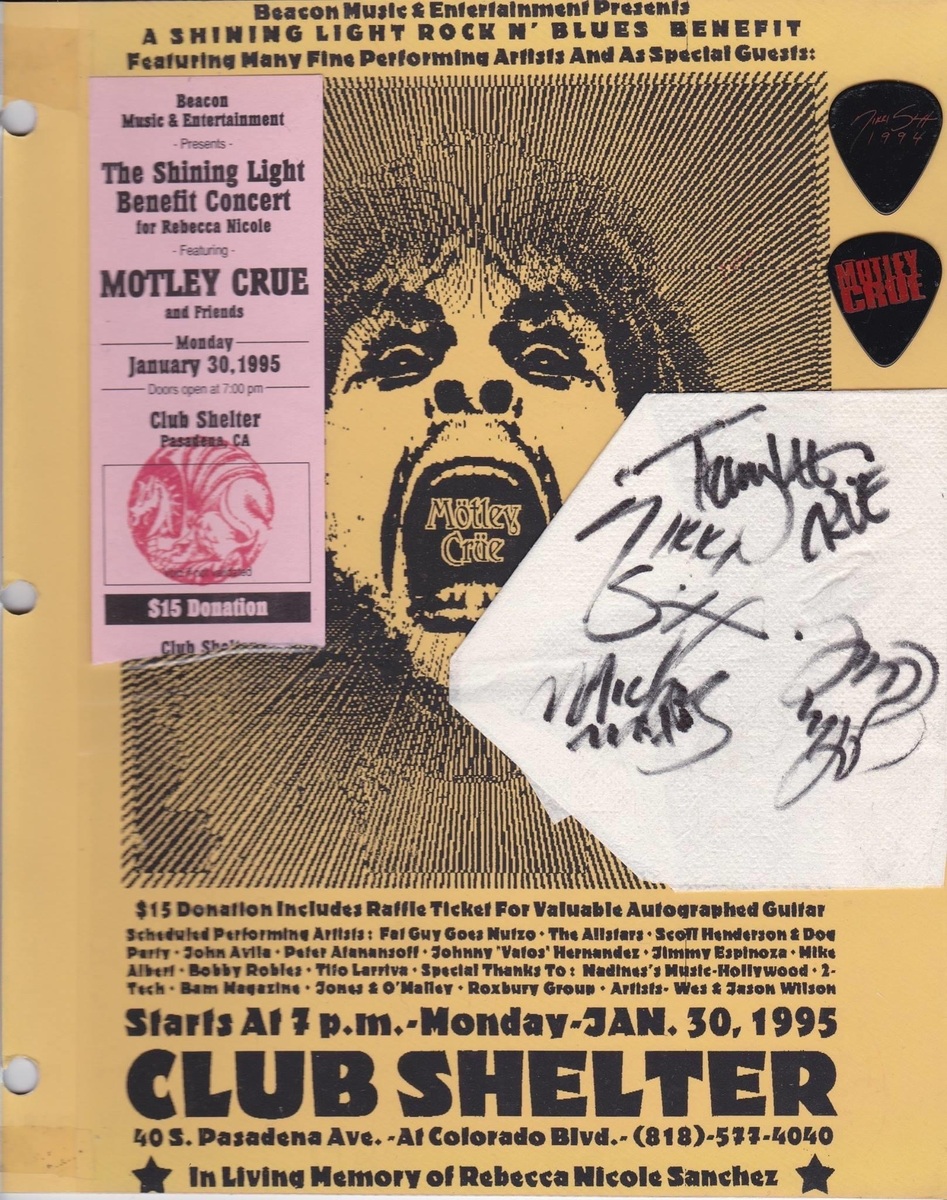 Beacon Music & Entertainment Presents
A SHINING LIGHT ROCK N' BLUES BENEFIT
Featuring Many Fine Performing Artists And As Special Guests:
Beacon
Music & Entertainment
- Presents -
The Shining Light
Benefit Concert
for Rebecca Nicole
- Featuring -
MOTLEY CRUE
and Friends
Monday
January 30, 1995
Doors open at 7:00 pm
Club Shelter
Pasadena, CA
$15 Donation
Club Shelter
Nikki Sixx
1994
MÖTLEY
CRÜE
Mötley
Crüe
Tommy Lee
CRÜE
Nikki
Sixx
Mick
Mars
$15 Donation Includes Raffle Ticket For Valuable Autographed Guitar
Scheduled Performing Artists: Fat Guy Goes Nutzo • The Allstars • Scott Henderson & Dog
Party • John Avila • Peter Atanansoff • Johnny 'Vatos' Hernandez • Jimmy Espinoza • Mike
Albert • Bobby Robles • Tito Larriva • Special Thanks To: Nadines's Music-Hollywood • 2-
Tech • Bam Magazine • Jones & O'Malley • Roxbury Group • Artists- Wes & Jason Wilson
Starts At 7 p.m.-Monday-JAN. 30, 1995
CLUB SHELTER
40 S. Pasadena Ave. -At Colorado Blvd.- (818)-577-4040
In Living Memory of Rebecca Nicole Sanchez